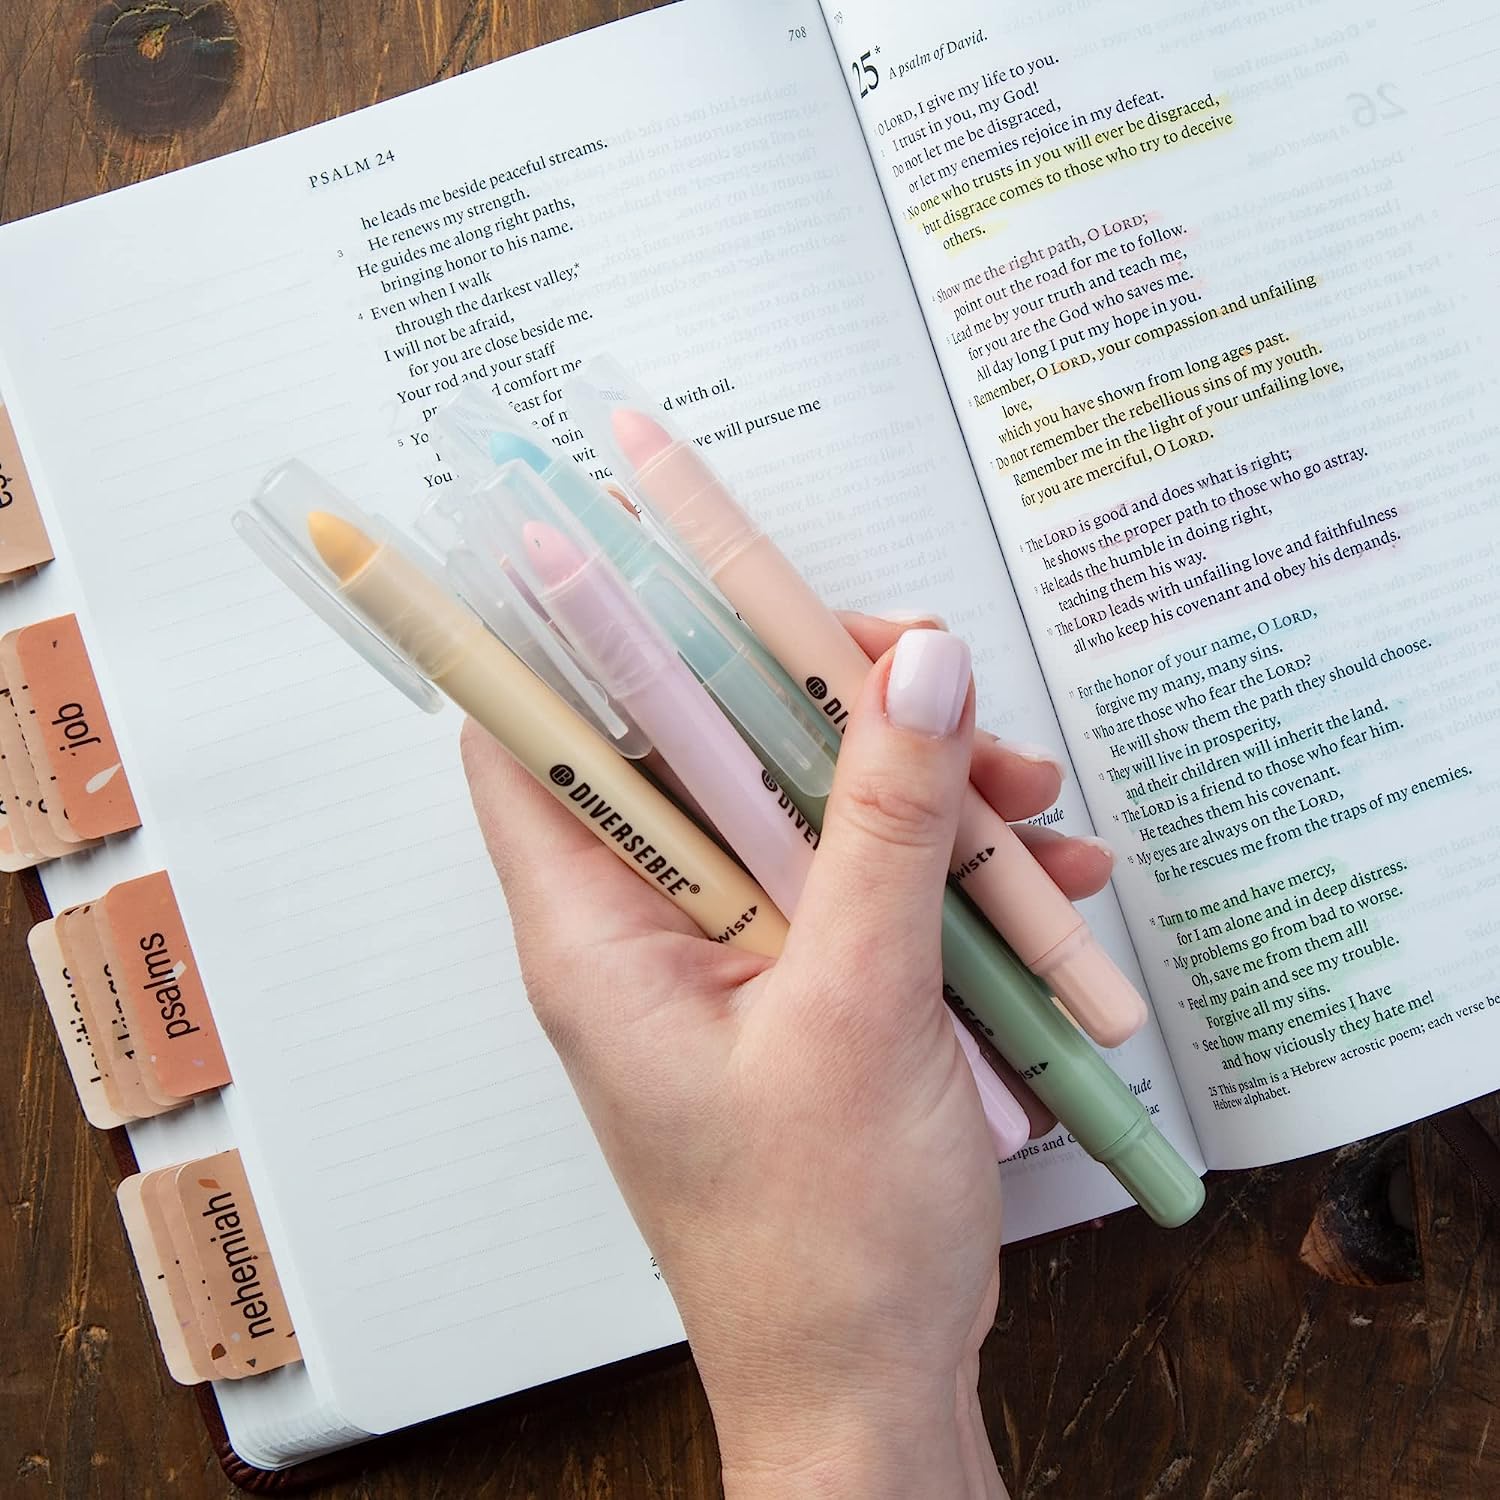 PSALM 24
708
he leads me beside peaceful streams.
He renews my strength.
3 He guides me along right paths,
bringing honor to his name.
4 Even when I walk
through the darkest valley,*
I will not be afraid,
for you are close beside me.
Your rod and your staff
comfort me
5
feast for
with oil.
will pursue me
25*
A psalm of David.
1 O LORD, I give my life to you.
2 I trust in you, my God!
Do not let me be disgraced,
or let my enemies rejoice in my defeat.
3 No one who trusts in you will ever be disgraced,
but disgrace comes to those who try to deceive
others.
4 Show me the right path, O LORD;
point out the road for me to follow.
5 Lead me by your truth and teach me,
for you are the God who saves me.
All day long I put my hope in you.
6 Remember, O LORD, your compassion and unfailing
love,
which you have shown from long ages past.
7 Do not remember the rebellious sins of my youth.
Remember me in the light of your unfailing love,
for you are merciful, O LORD.
8 The LORD is good and does what is right;
he shows the proper path to those who go astray.
9 He leads the humble in doing right,
teaching them his way.
10 The LORD leads with unfailing love and faithfulness
all who keep his covenant and obey his demands.
11 For the honor of your name, O LORD,
forgive my many, many sins.
12 Who are those who fear the LORD?
He will show them the path they should choose.
13 They will live in prosperity,
and their children will inherit the land.
14 The LORD is a friend to those who fear him.
He teaches them his covenant.
15 My eyes are always on the LORD,
for he rescues me from the traps of my enemies.
16 Turn to me and have mercy,
for I am alone and in deep distress.
17 My problems go from bad to worse.
Oh, save me from them all!
18 Feel my pain and see my trouble.
Forgive all my sins.
19 See how many enemies I have
and how viciously they hate me!
25 This psalm is a Hebrew acrostic poem; each verse be
Hebrew alphabet.
job
psalms
nehemiah
DIVERSEBEE®